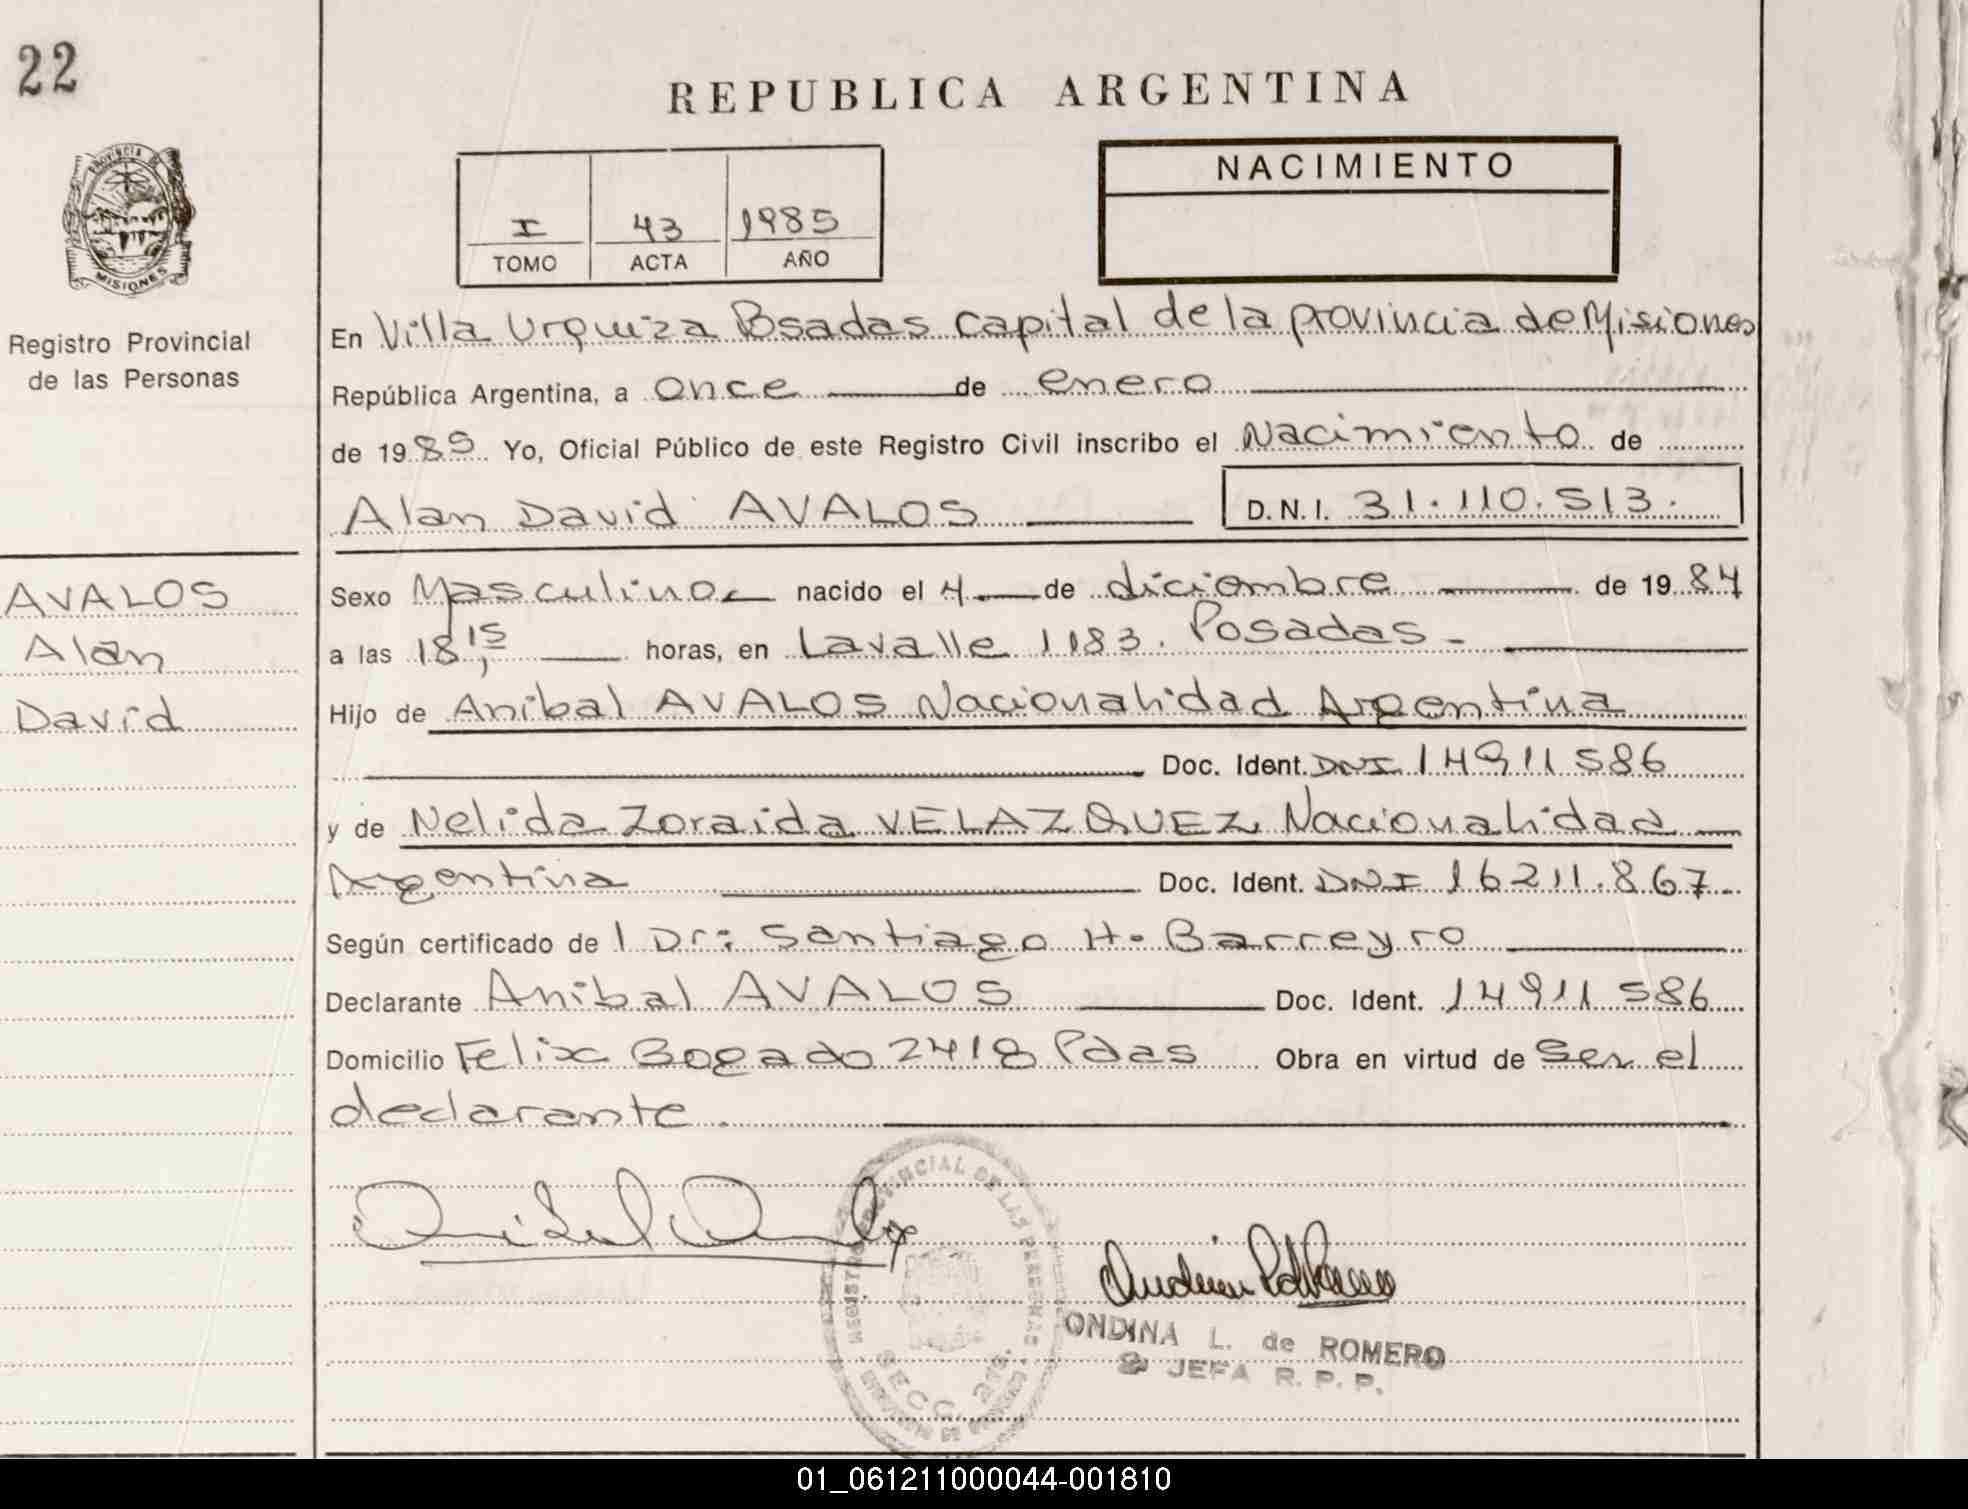 22
REPUBLICA ARGENTINA
PROVINCIA DE
MISIONES
Registro Provincial
de las Personas
I 43 1985
TOMO ACTA AÑO
NACIMIENTO
En Villa Urquiza Posadas capital de la provincia de Misiones
República Argentina, a once de enero
de 1985 Yo, Oficial Público de este Registro Civil inscribo el Nacimiento de
Alan David AVALOS D.N.I. 31.110.513.
AVALOS
Alan
David
Sexo Masculino nacido el 4 de diciembre de 1984
a las 18,15 horas, en Lavalle 1183. Posadas -
Hijo de Anibal AVALOS Nacionalidad Argentina
Doc. Ident. DNI 14911586
y de Nelida Zoraida VELAZQUEZ Nacionalidad
Argentina Doc. Ident. DNI 16211.867
Según certificado de l Dr: Santiago H. Barreyro
Declarante Anibal AVALOS Doc. Ident. 14911586
Domicilio Felix Bogado 2418 Pdas Obra en virtud de ser el
declarante.
REGISTRO PROVINCIAL DE LAS PERSONAS
SECC. 2da.
ONDINA L. de ROMERO
JEFA R. P. P.
01_061211000044-001810